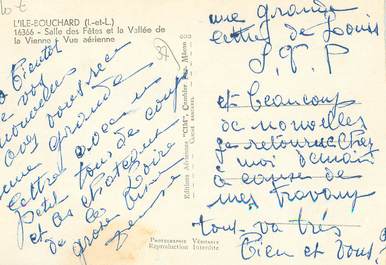 L'ILE-BOUCHARD (I.-et-L.)
16366 - Salle des Fêtes et la Vallée de
la Vienne - Vue aérienne
37
a bientôt
de vos
nouvelles
avez vous reçu
une grande
lettre avec un
petit tour de
et les chateaux
de la Loire
grosse bise
Editions Aériennes "CIM", Combier Imp. Mâcon
Photographie Véritable
Reproduction Interdite
une grande
lettre de Louis
S.T.P
et beaucoup
de nouvelles
je retourne chez
moi demain
à cause de
mes travaux
tout va très
bien et vous